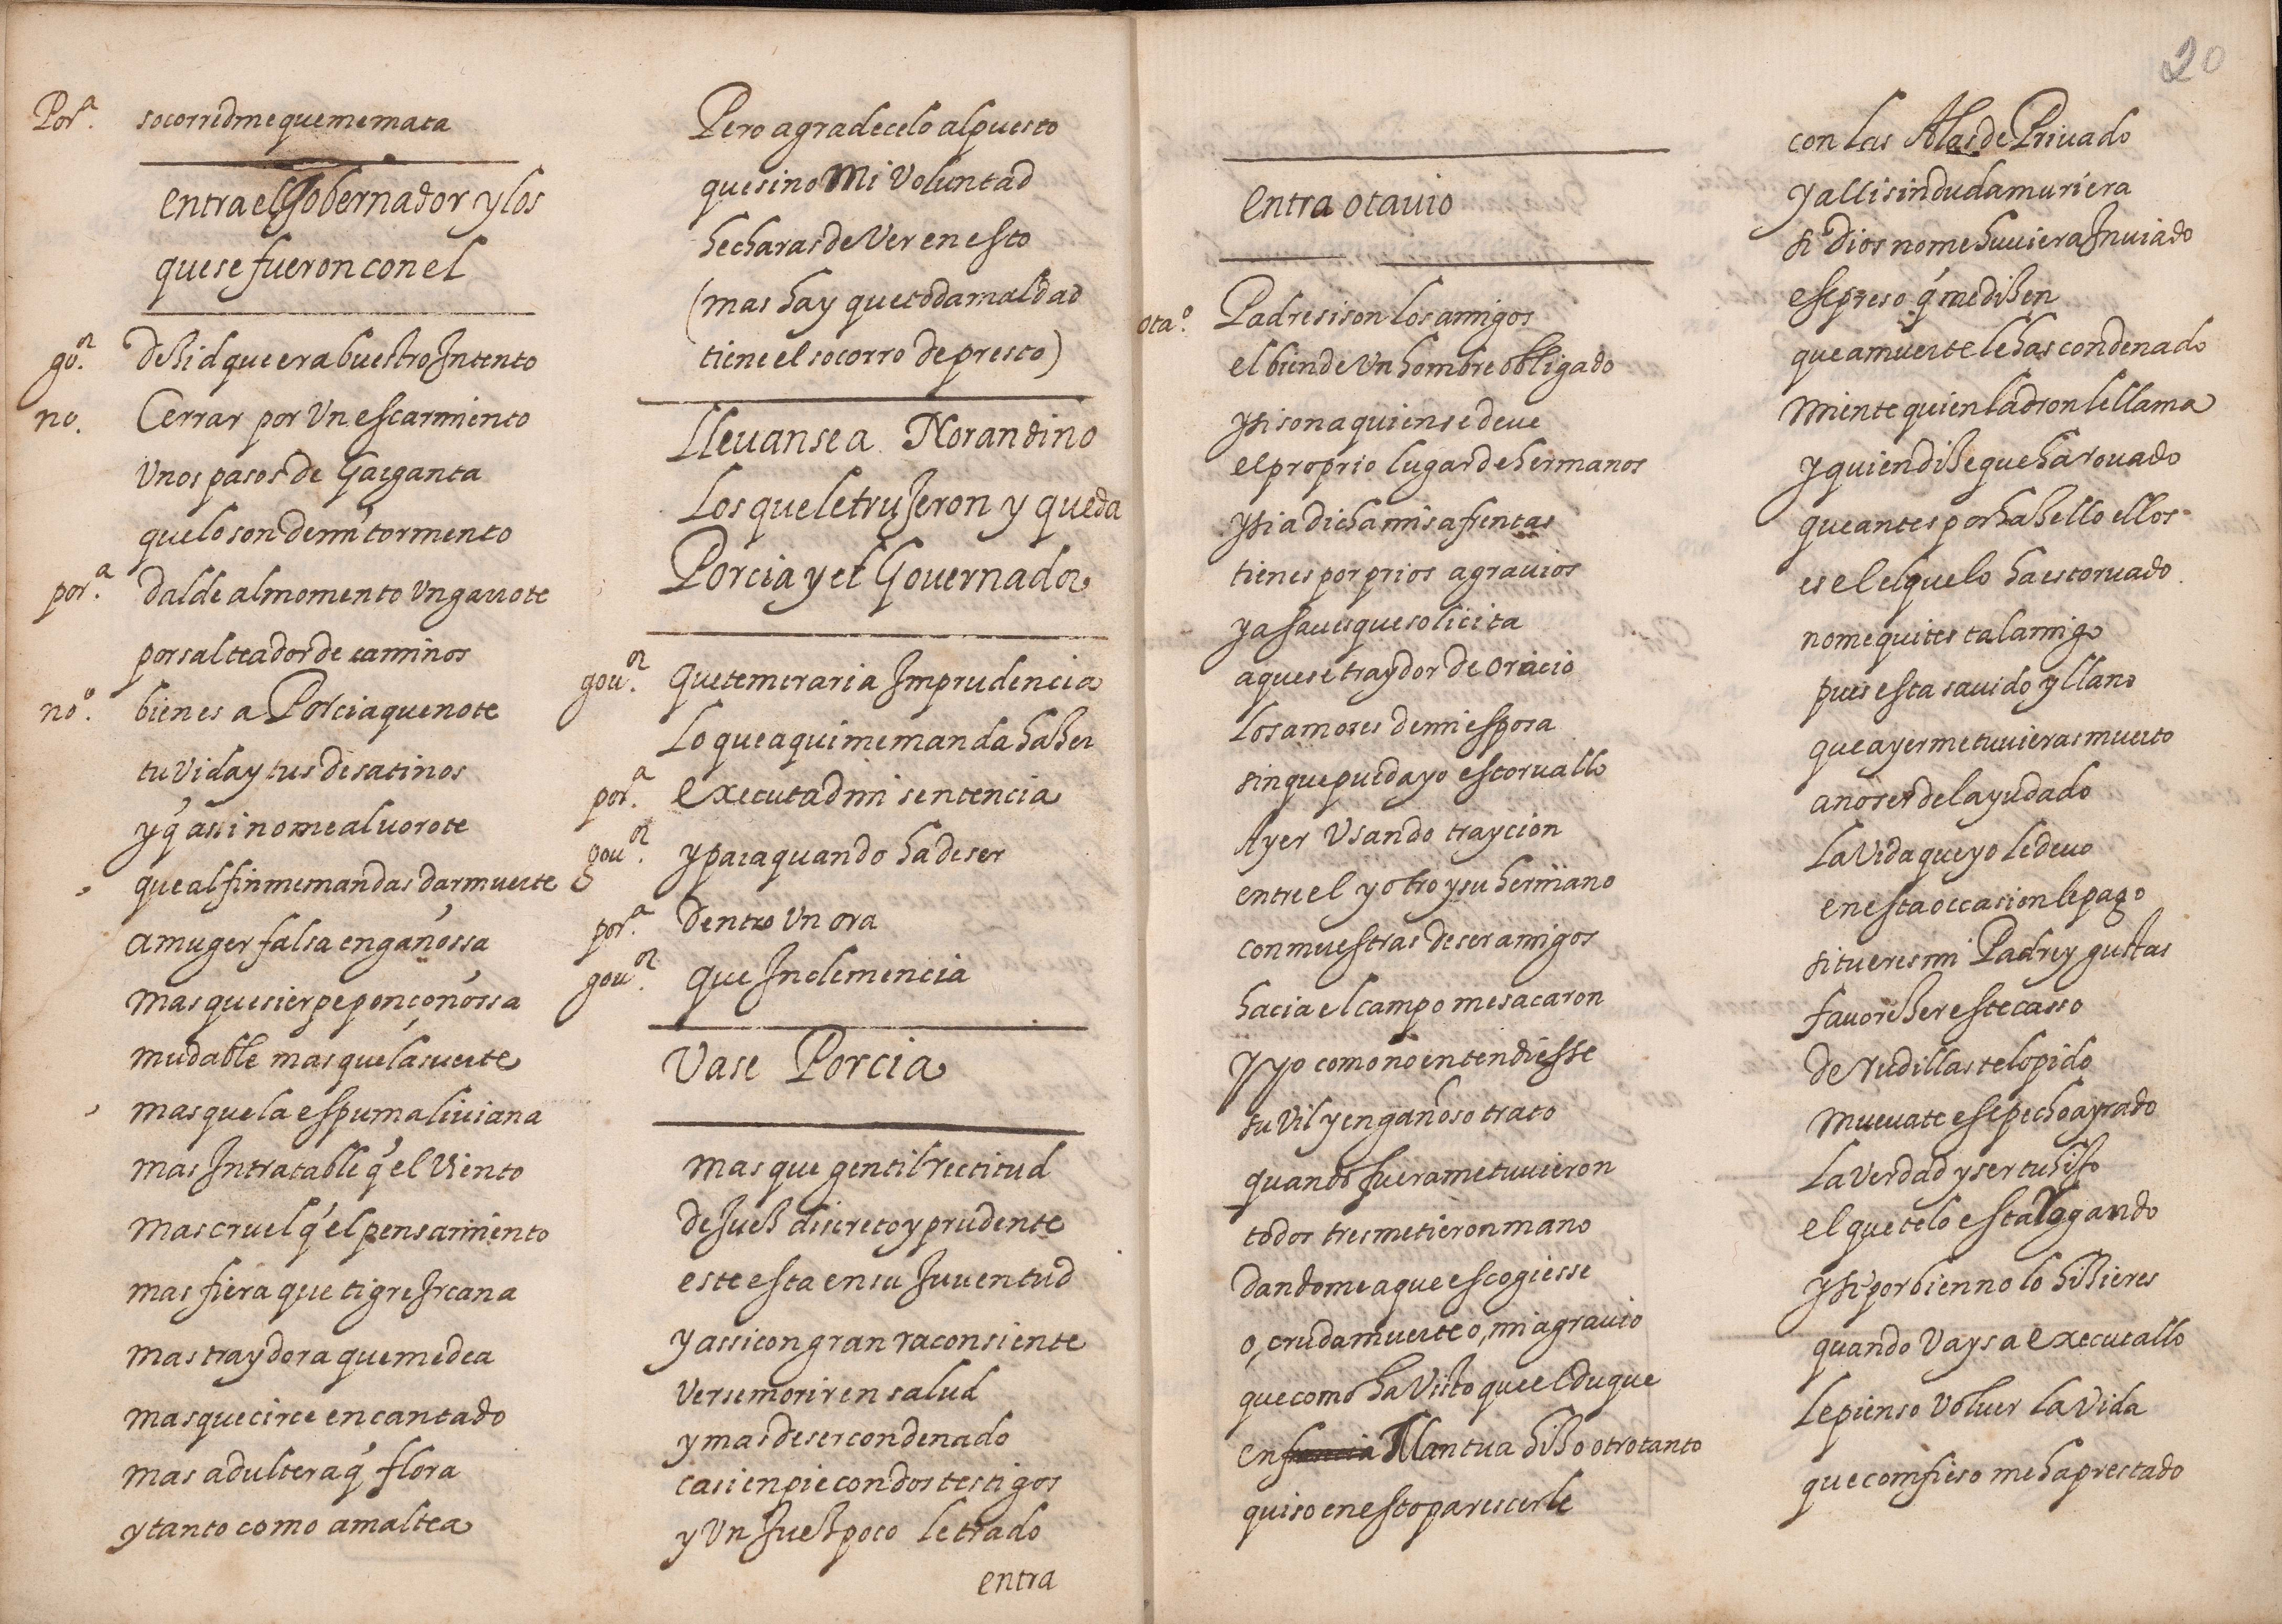 Por.ª socorredme que me mata
entra el Gobernador y los
que se fueron con el
go.or deҫid que era buestro Intento
no. Cerrar por Un escarmiento
Unos pasos de Garganta
que lo son de mi tormento
por.ª dalde al momento Un garrote
por salteador de caminos
no.º bienes a Porcia que note
tu Vida y tus desatinos
y q̃ assi no me alvorote
que al fin me mandas dar muerte
a muger falsa engañossa
mas que sierpe ponçoñossa
mudable mas que la suerte
mas que la espuma liuiana
mas Intratable q̃ el Viento
mas cruel q̃ el pensamiento
mas fiera que tigre Ircana
mas traydora que medea
mas que circe encantado
mas adultera q̃ flora
y tanto como amaltea
Pero agradecelo al puesto
que sino Mi Voluntad
hecharas de Ver en esto
(mas hay que toda maldad
tiene el socorro de presto)
Lleuanse a Norandino
Los que le truJeron y queda
Porcia y el Gouernador
gou.or que temeraria Imprudencia
Lo que aqui me manda haҫer
por.ª executad mi sentencia
gou.or y para quando ha de ser
por.ª Dentro Un ora
gou.or que Inclemencia
Vase Porcia
mas que gentil rectitud
de Jueҫ discreto y prudente
este esta en su Juuentud
y assi con gran raҫon siente
Verse morir en salud
y mas de ser condenado
casi en pie con dos testigos
y Un Jueҫ poco letrado
entra
20
entra otauio
ota.º Padre si son los amigos
el bien de Un hombre obligado
y si son a quien se deve
el proprio lugar de hermanos
y si a dicha mis afrentas
tienes por prios agravios
ya saues que solicita
aquese traydor de oracio
Los amores de mi esposa
sin que pueda yo estoruallo
Ayer Usando traycion
entre el y otro y su hermano
con muestras de ser amigos
hacia el campo me sacaron
y yo como no entendiesse
su Vil y engañoso trato
quando fuera me tuuieron
todos tres metieron mano
dandome a que escogiesse
o, cruda muerte o, mi agrauio
que como ha Visto que el duque
en francia Mantua hiҫo otro tanto
quiso en esto parescerle
con las Alas de Priuado
y alli sin duda muriera
si Dios no me huuiera Inuiado
ese preso q̃ me diҫen
que a muerte le has condenado
miente quien ladron le llama
y quien diҫe que ha rouado
que antes por haҫello ellos
es el el que lo ha estoruado
no me quites tal amigo
pues esta sauido y llano
que ayer me tuuieras muerto
a no ser del ayudado
La Vida que yo le deuo
en esta occasion le pago
si tu eres mi Padre y gustas
fauoreҫer este casso
de rudillas te lo pido
mueuate ese pecho ayrado
La Verdad y ser tu hijo
el que te lo esta Rogando
y si por bien no lo hiҫieres
quando Vays a executallo
Le pienso Voluer la Vida
que comfieso me ha prestado